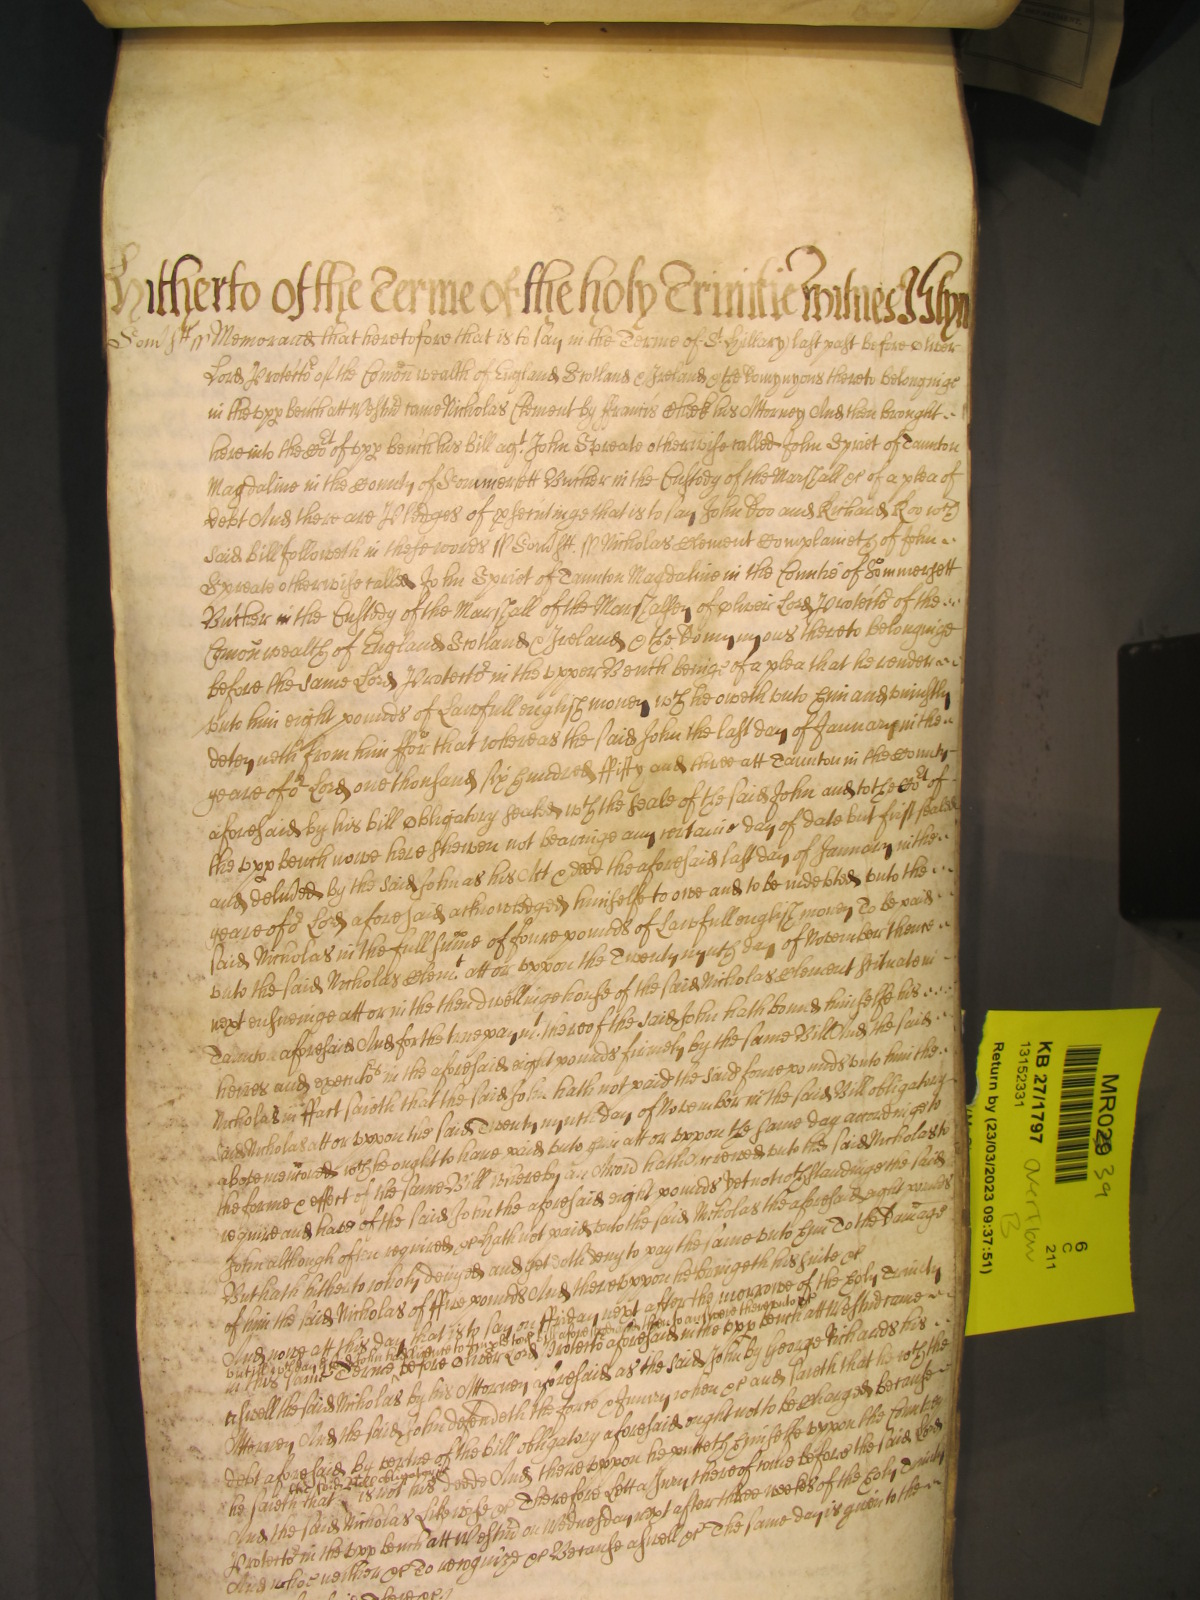 Hitherto of the Terme of the holy Trinitie witnes
Som sstt Memorand that heretofore that is to say in the Terme of St Hillary last past before Oliver
Lord Protector of the Comon wealth of England Scotland & Ireland & the Domynyons thereto belonginge
in the upp bench att Westmr came Nicholas Clement by ffrancis Cheek his Attorney And then brought
here into the Cot of upp bench his bill agt John Spreate otherwise called John Spriet of Taunton
Magdaline in the County of Sommersett Butcher in the Custody of the Marshall &c of a plea of
debt And there are Pledges of psecutinge that is to say John Doo and Richard Roo wch
said bill followeth in these words ss Somstt ss Nicholas Clement Complaineth of John
Spreate otherwise called John Spriet of Taunton Magdaline in the Countie of Sommersett
Butcher in the Custody of the Marshall of the Marshalsey of Oliver Lord Protector of the
Comon wealth of England Scotland & Ireland & the Dominyons thereto belonginge
before the same Lord Protector in the upper Bench beinge of a plea that he render
unto him eight pounds of Lawfull english money wch he oweth unto him and uniustly
deteyneth from him ffor that whereas the said John the last day of January in the
yeare of or Lord one thousand six hundred ffifty and three att Taunton in the County
aforesaid by his bill Obligatory sealed wth the seale of the said John and to the Cot of
the upp bench nowe here shewen not bearinge any certaine day of date but first sealed
and delivded by the said John as his Act & deed the aforesaid last day of January in the
yeare of or Lord aforesaid acknowledged himselfe to owe and to be indebted unto the
said Nicholas in the full sume of foure pounds of Lawfull english money To be paid
unto the said Nicholas Clemt att or uppon the Twenty nynth day of November thence
next ensueinge att or in the then dwellinge house of the said Nicholas Clement scituate in
Taunton aforesaid And for the true paymt thereof the said John hath bound himselfe his
heires and executors in the aforesaid eight pounds firmely by the same Bill And the said
Nicholas in ffact saieth that the said John hath not paid the said foure pounds unto him the
said Nicholas att or uppon the said Twenty nynth day of November in the said Bill obligatory
above mentioned wch he ought to have paid unto him att or uppon the same day accordinge to
the forme & effect of the same Bill whereby an Accion hath accrewed unto the said Nicholas to
require and have of the said John the aforesaid eight pounds Yet notwthstandinge the said
John although often required &c hath not paid unto the said Nicholas the aforesaid eight pounds
But hath hitherto wholy denyed and yet doth deny to pay the same unto him To the Damage
of him the said Nicholas of ffive pounds And thereuppon he bringeth his suite &c
And nowe att this day that is to say on ffriday next after the morrowe of the holy Trinity
in this same Terme before Oliver Lord Protector aforesaid in the upp bench att Westmr came
aswell the said Nicholas by his Attorney aforesaid as the said John by George Richards his
Attorney And the said John defendeth the force & Iniury when &c and saieth that he wth the
debt aforesaid by vertue of the bill obligatory aforesaid ought not to be charged because
he saieth that the said bill obligatory is not his deede And thereuppon he putteth himselfe uppon the Country
And the said Nicholas Likewise &c Therefore Lett a Jury thereof come before the said Lord
Protector in the upp bench att Westmr on Wednesday next after three weekes of the holy Trinity
And who neither &c To recognize &c Because aswell &c The same day is given to the
MR029 39
KB 27/1797
13152331
Return by (23/03/2023 09:37:51)
6
C
211
overflow
B